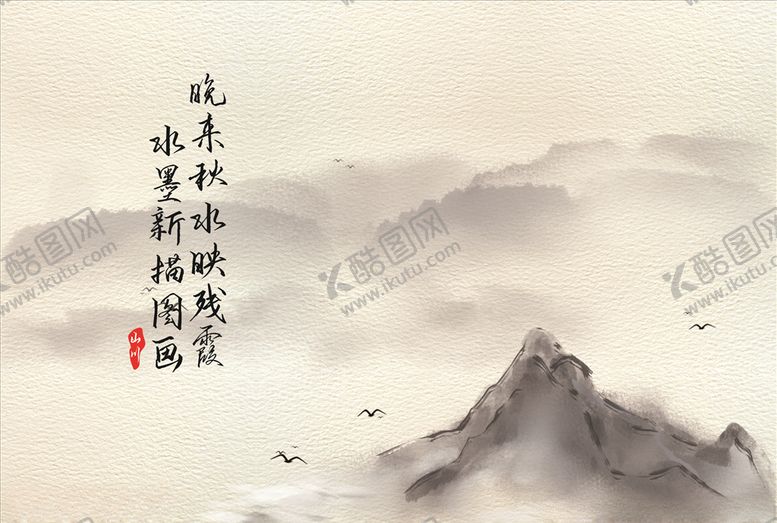 晚来秋水映残霞
水墨新描图画
山川
酷图网
www.ikutu.com
酷图网
www.ikutu.com
酷图网
www.ikutu.com
酷图网
www.ikutu.com